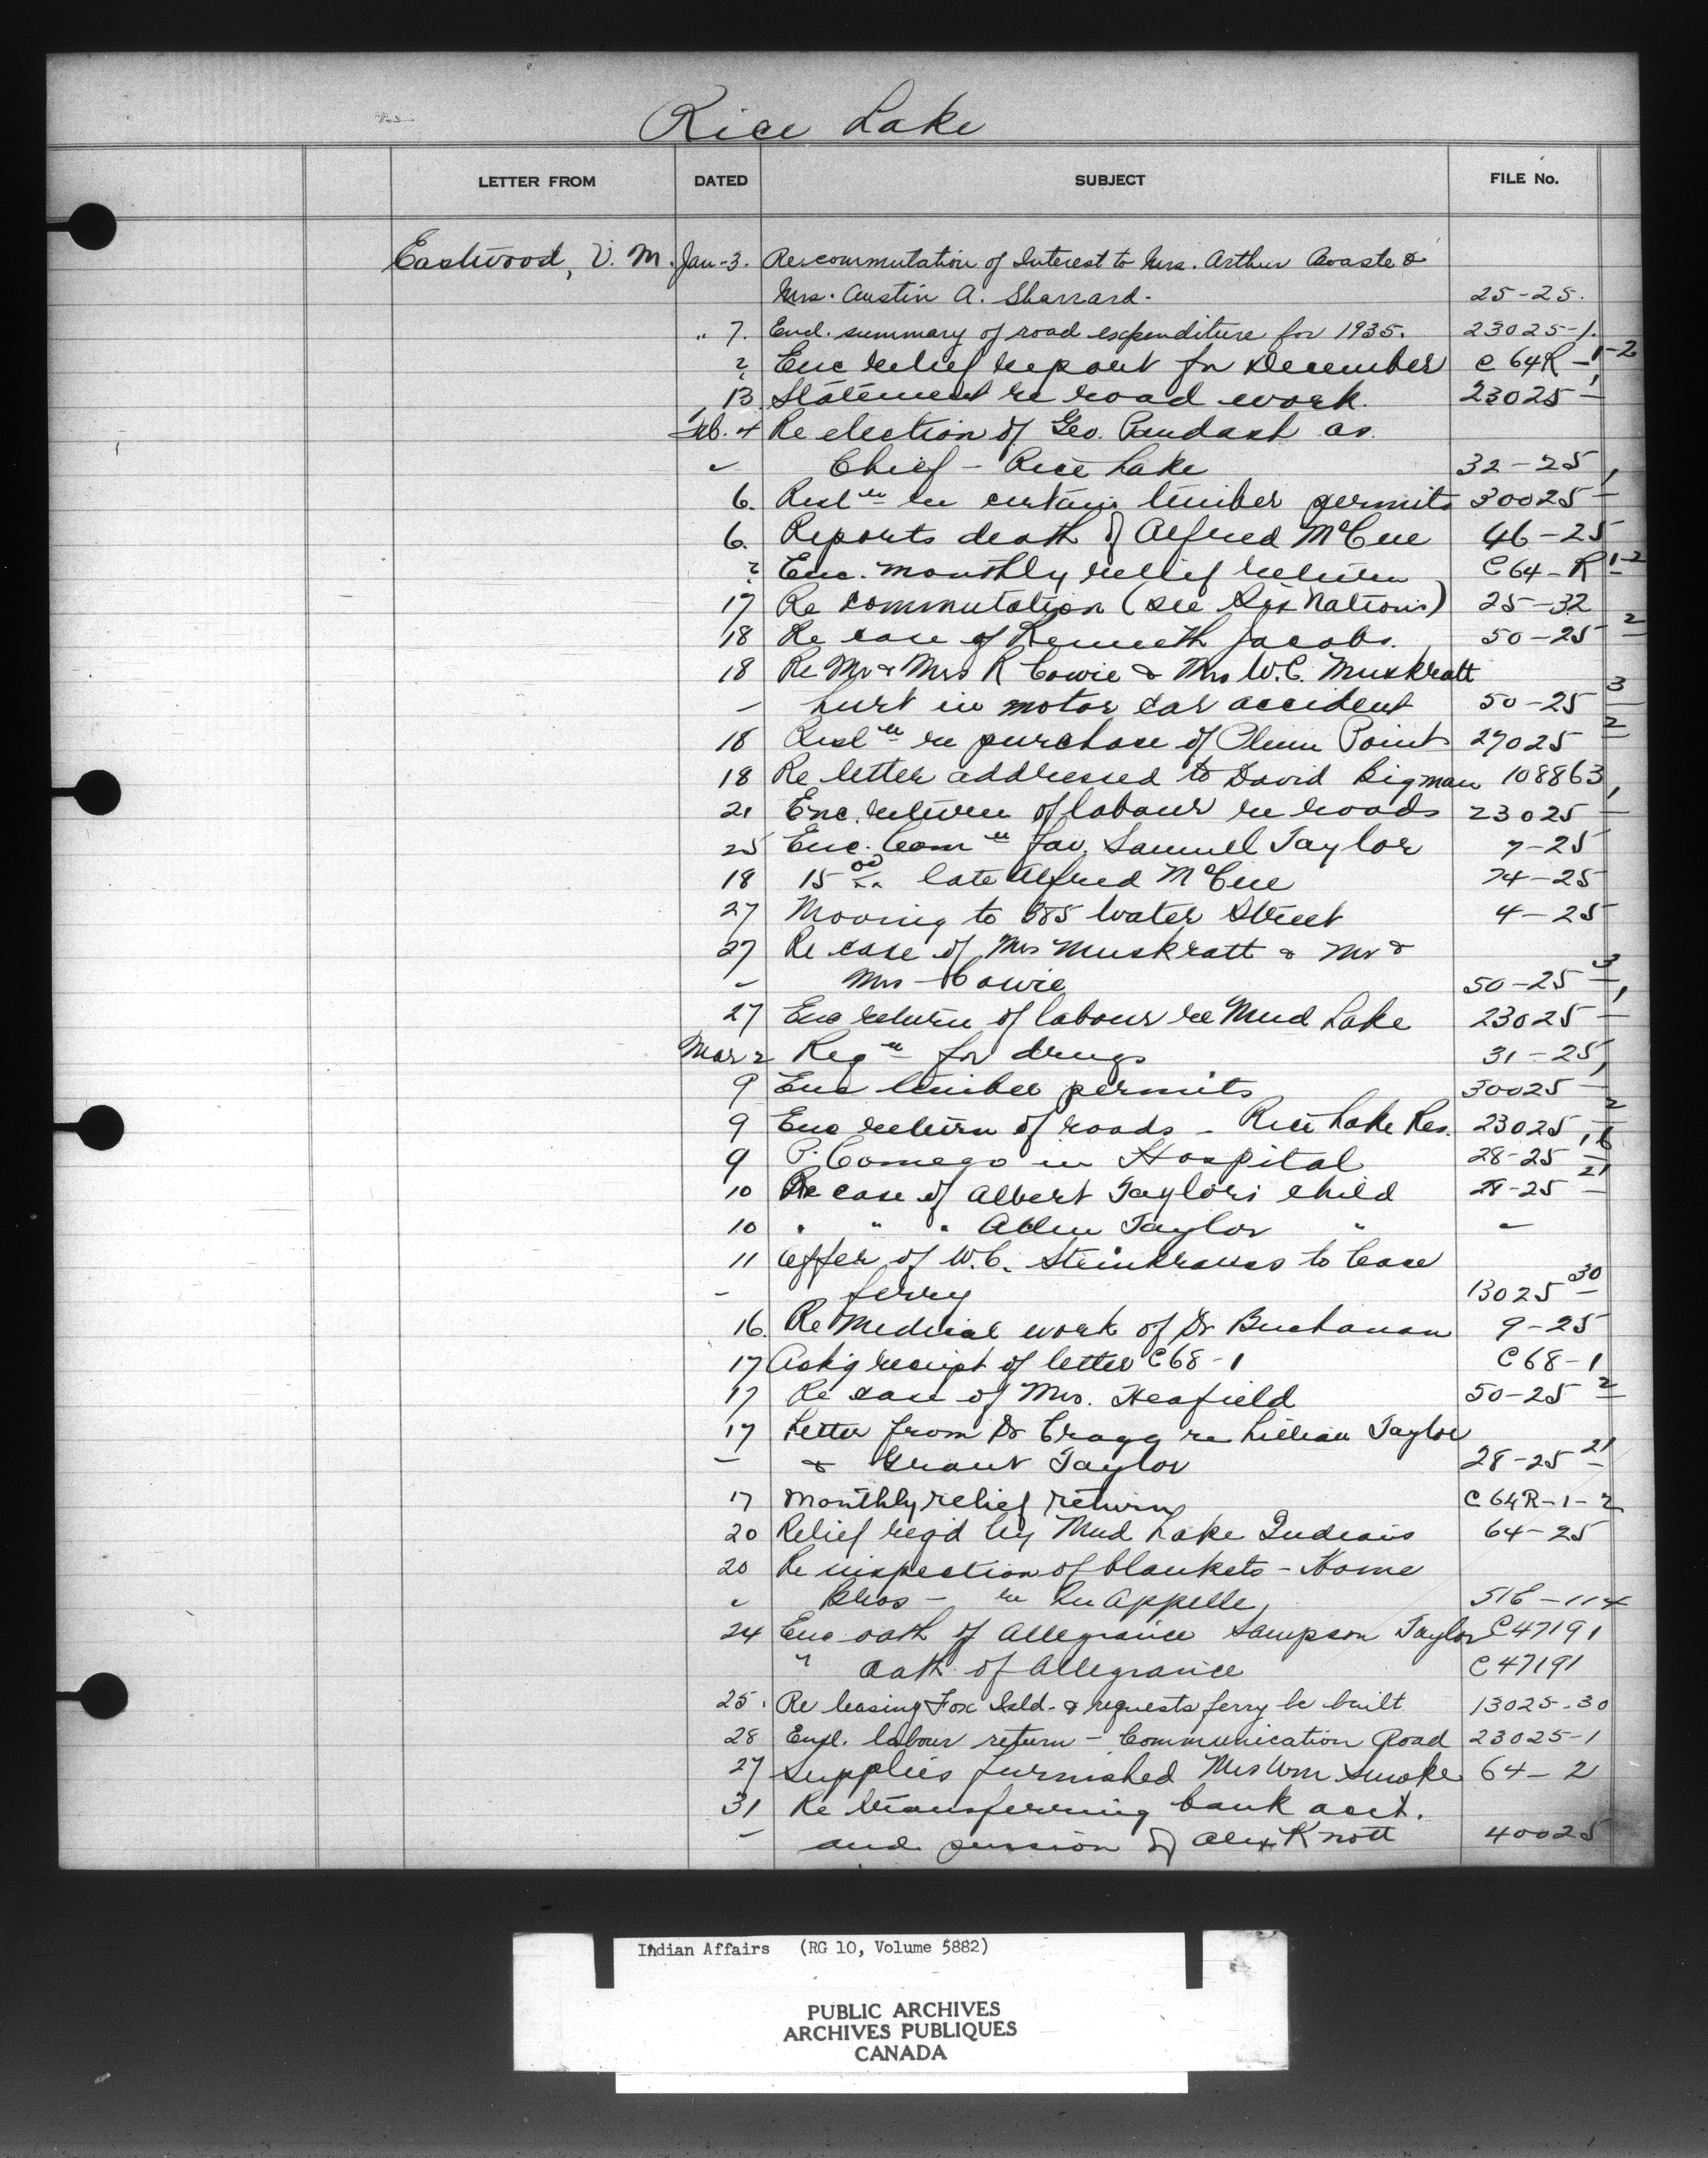 Rice Lake
LETTER FROM DATED SUBJECT FILE No.
Eastwood, V. M. Jan-3. Re commutation of Interest to Mrs. Arthur &
Mrs. Austin A. Sharrard. 25-25.
" 7. Encl. summary of road expenditure for 1935. 23025-1.
? Enc relief report for December C 64R-1-2
13 Statement re road work. 23025-1
Feb. 4 Re election of Geo. Paudash as
" Chief - Rice Lake 32-25
6. Resl'n re certain timber permits 30025-1
6. Reports death of Alfred McCue 46-25
? Enc. monthly relief return C 64-R 1-2
17 Re commutation (see Six Nations) 25-32
18 Re case of Kenneth Jacobs. 50-25 2
18 Re Mr & Mrs R Cowie & Mrs W.C. Muskratt
- hurt in motor car accident 50-25 3
18 Resl'n re purchase of Plum Point 27025 2
18 Re letter addressed to David Bigman 108863
21 Enc. return of labour re roads 23025-1
25 Enc. Com'n fav. Samuel Taylor 7-25
18 15.00 late Alfred McCue 74-25
27 Mooving to 385 Water Street 4-25
27 Re case of Mrs Muskratt & Mr &
- Mrs - Cowie 50-25 3
27 Enc return of labour re Mud Lake 23025-1
Mar 2 Reqn for drugs 31-25
9 Enc timber permits 30025-1
9 Enc return of roads - Rice Lake Res. 23025-2
9 P. Comego in Hospital 28-25
10 Re case of Albert Taylors child 28-25 21
10 " " " Allen Taylor " "
11 Offer of W.C. Steinkrauss to lease
- ferry 13025-30
16. Re Medical work of Dr Buchanan 9-25
17 Ack'g receipt of letter C68-1 C68-1
17 Re case of Mrs. Heafield 50-25 2
17 Letter from Dr Cragg re Lillian Taylor
- & Grant Taylor 28-25 21
17 Monthly relief return C 64R-1-2
20 Relief req'd by Mud Lake Indians 64-25
20 Re inspection of blankets - Horne
" Bros - re Qu Appelle, 516-114
24 Enc oath of allegiance Sampson Taylor C47191
" oath of allegiance C47191
25. Re leasing Fox Isld. & requests ferry be built 13025-30
28 Encl. labour return - Communication Road 23025-1
27 Supplies furnished Mrs Wm. Smoke 64-2
31 Re transferring bank acct.
- and pension of Alex Knott 40025
Indian Affairs (RG 10, Volume 5882)
PUBLIC ARCHIVES
ARCHIVES PUBLIQUES
CANADA